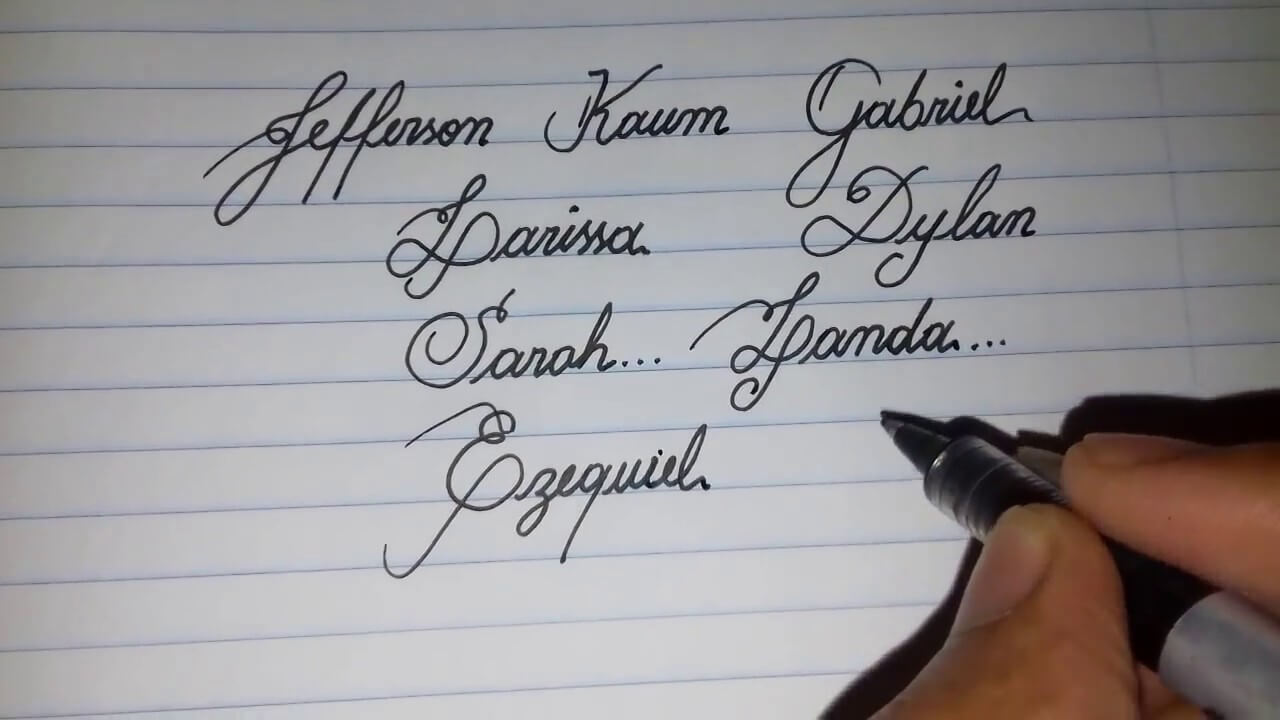 Jefferson Kaum Gabriel
Larissa Dylan
Sarah... Landa...
Ezequiel